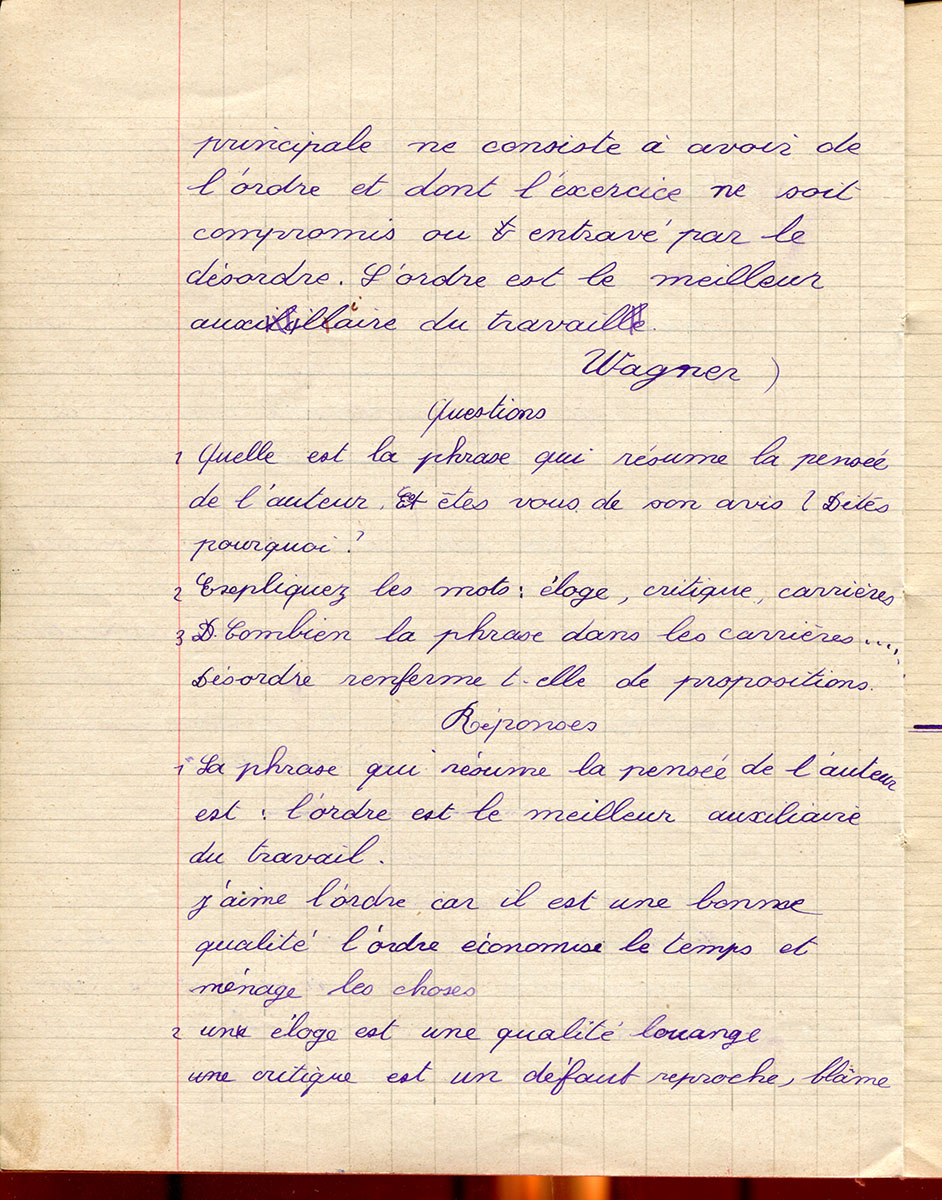 principale ne consiste à avoir de
l'ordre et dont l'exercice ne soit
compromis ou entravé par le
désordre. L'ordre est le meilleur
auxiliaire du travail.
Wagner )
Questions
1 Quelle est la phrase qui résume la penseé
de l'auteur. Et êtes vous de son avis ? Dités
pourquoi ?
2 Expliquez les mots : éloge, critique, carrières
3 D. Combien la phrase dans les carrières....
Désordre renferme t-elle de propositions.
Réponses
1 La phrase qui résume la penseé de l'auteur
est : l'ordre est le meilleur auxiliaire
du travail.
j'aime l'ordre car il est une bonne
qualité l'ordre économise le temps et
ménage les choses
2 une éloge est une qualité louange
une critique est un défaut reproche, blâme